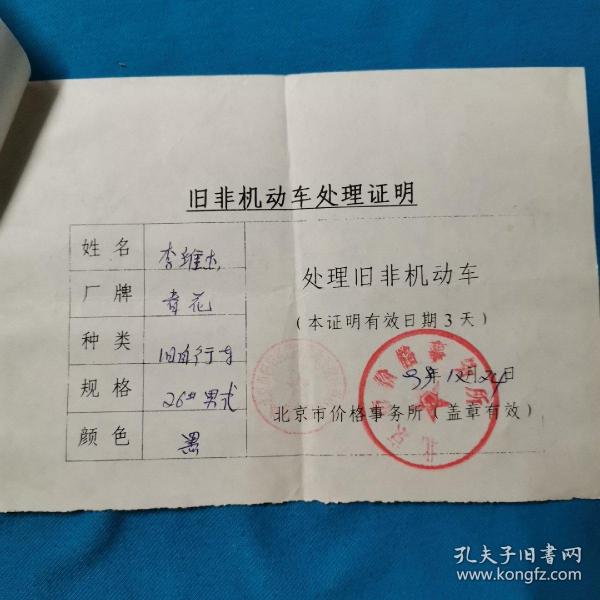 旧非机动车处理证明
姓名 李维杰
厂牌 青花
种类 旧自行车
规格 26# 男式
颜色 黑
处理旧非机动车
(本证明有效日期3天)
98年12月24日
北京市价格事务所(盖章有效)
北京市价格事务所
孔夫子旧书网
www.kongfz.com